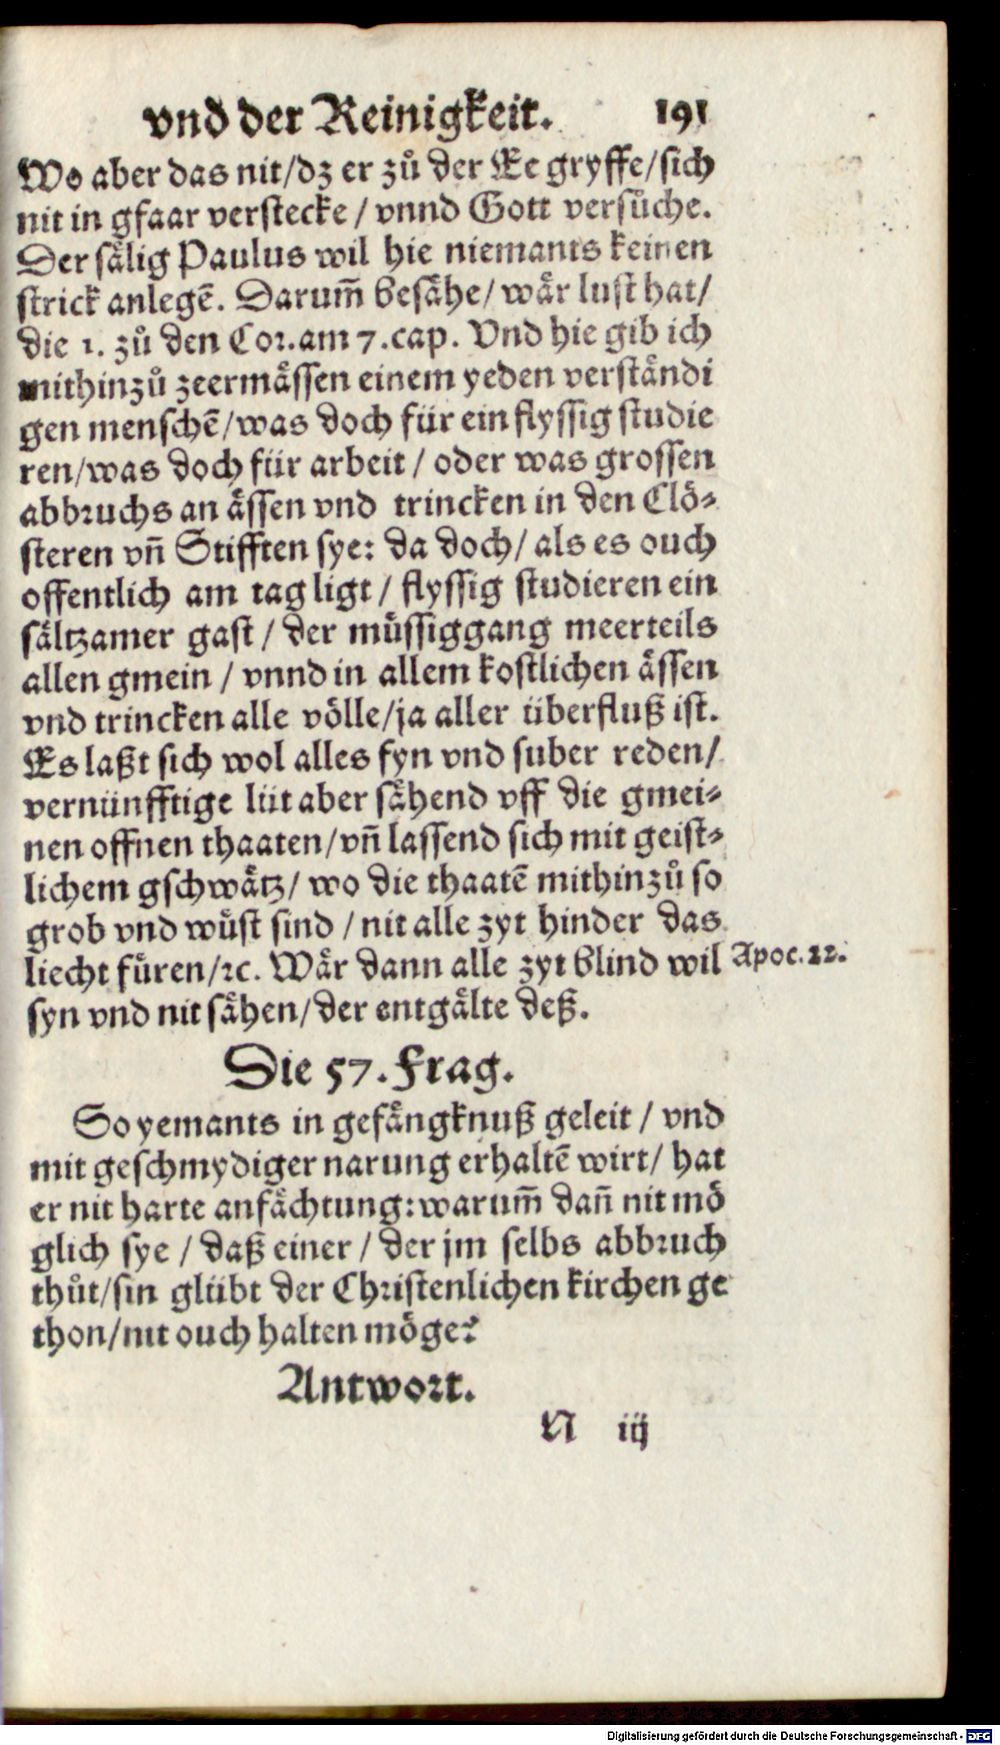 vnd der Reinigkeit. 191
Wo aber das nit/dz er zů der Ee gryffe/sich
nit in gfaar verstecke / vnnd Gott versůche.
Der sålig Paulus wil hie niemants keinen
strick anlegẽ. Darum̃ besåhe/ wår lust hat/
die 1. zů den Cor. am 7. cap. Vnd hie gib ich
mithinzů zeermåssen einem yeden verståndi
gen menschẽ/was doch für ein flyssig studie
ren/was doch für arbeit / oder was grossen
abbruchs an åssen vnd trincken in den Clö⸗
steren vñ Stifften sye: da doch/ als es ouch
offentlich am tag ligt / flyssig studieren ein
såltzamer gast / der müssiggang meerteils
allen gmein / vnnd in allem kostlichen åssen
vnd trincken alle völle/ja aller überfluß ist.
Es laßt sich wol alles fyn vnd suber reden/
vernünfftige lüt aber såhend vff die gmei⸗
nen offnen thaaten/vñ lassend sich mit geist⸗
lichem gschwåtz/ wo die thaatẽ mithinzů so
grob vnd wůst sind / nit alle zyt hinder das
liecht füren/ꝛc. Wår dann alle zyt blind wil
Apoc. 22.
syn vnd nit såhen/der entgålte deß.
Die 57. Frag.
So yemants in gefångknuß geleit / vnd
mit geschmydiger narung erhaltẽ wirt/ hat
er nit harte anfåchtung: warum̃ dañ nit mö
glich sye / daß einer / der jm selbs abbruch
thůt/sin glübt der Christenlichen kirchen ge
thon/nit ouch halten möge?
Antwort.
N iij
Digitalisierung gefördert durch die Deutsche Forschungsgemeinschaft - DFG